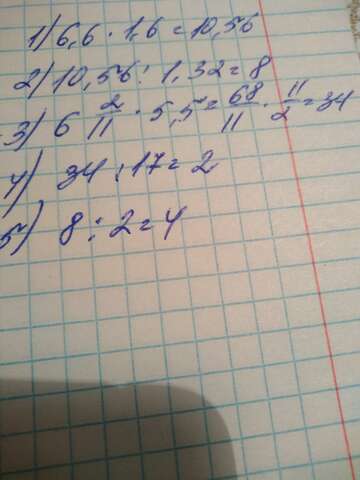 1) 6,6 · 1,6 = 10,56
2) 10,56 : 1,32 = 8
3) 6 2/11 · 5,5 = 68/11 · 11/2 = 34
4) 34 : 17 = 2
5) 8 : 2 = 4